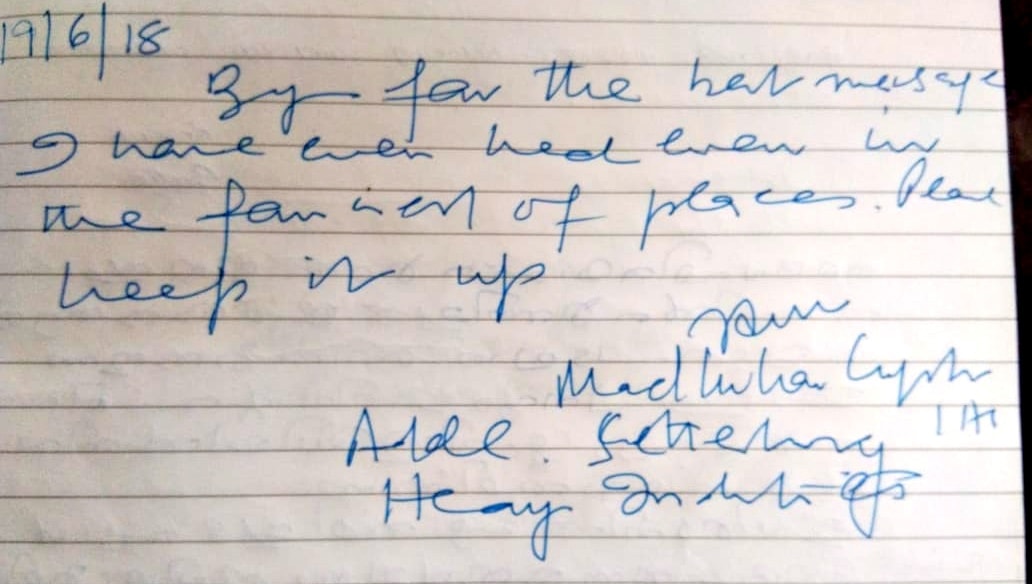 19/6/18
By far the best message
I have ever had even in
the fanciest of places. Please
keep it up
Madhukar Gupta
Addl. Secretary
Heavy Industries